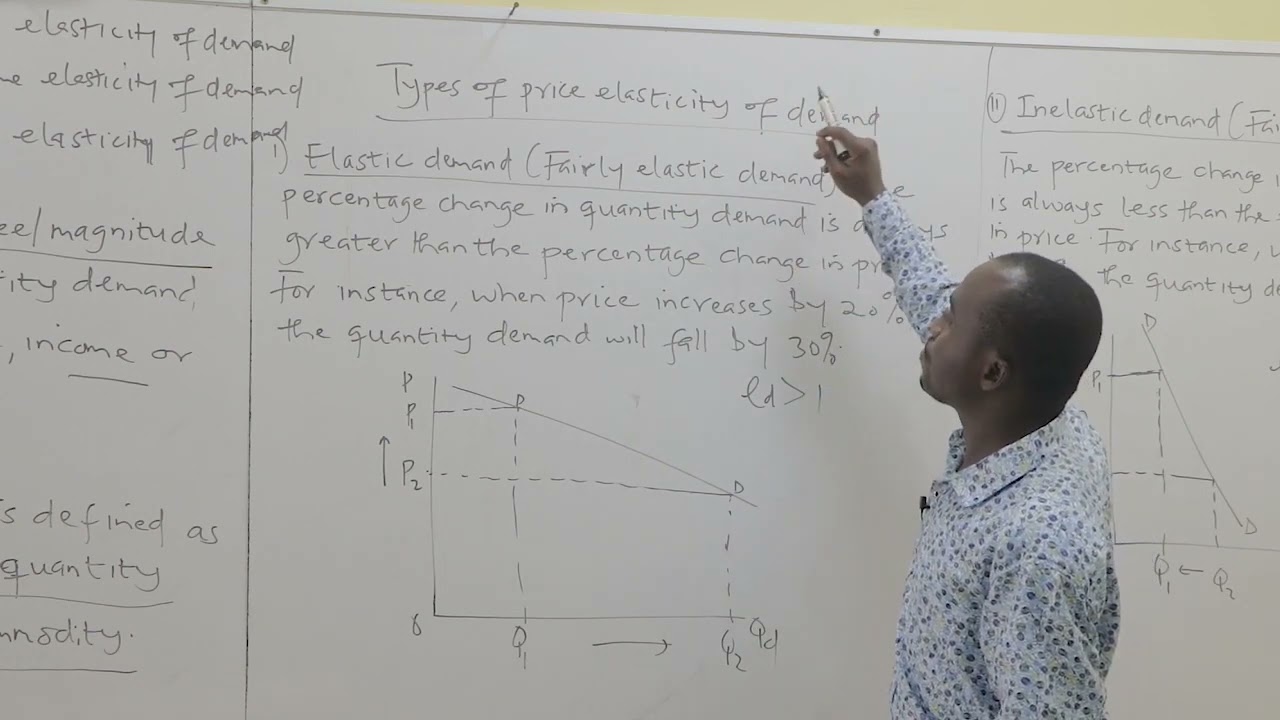 elasticity of demand
elasticity of demand
elasticity of demand
magnitude
demand
, income or
defined as
quantity
Types of price elasticity of demand
i) Elastic demand (Fairly elastic demand)
percentage change in quantity demand is
greater than the percentage change in
For instance, when price increases by 20%
the quantity demand will fall by 30%.
ed > 1
P
P1
D
P2
D
0
Q1
Q2
Qd
ii) Inelastic demand (
The percentage change
is always less than the
in price. For instance,
the quantity
D
P1
D
Q1 ← Q2